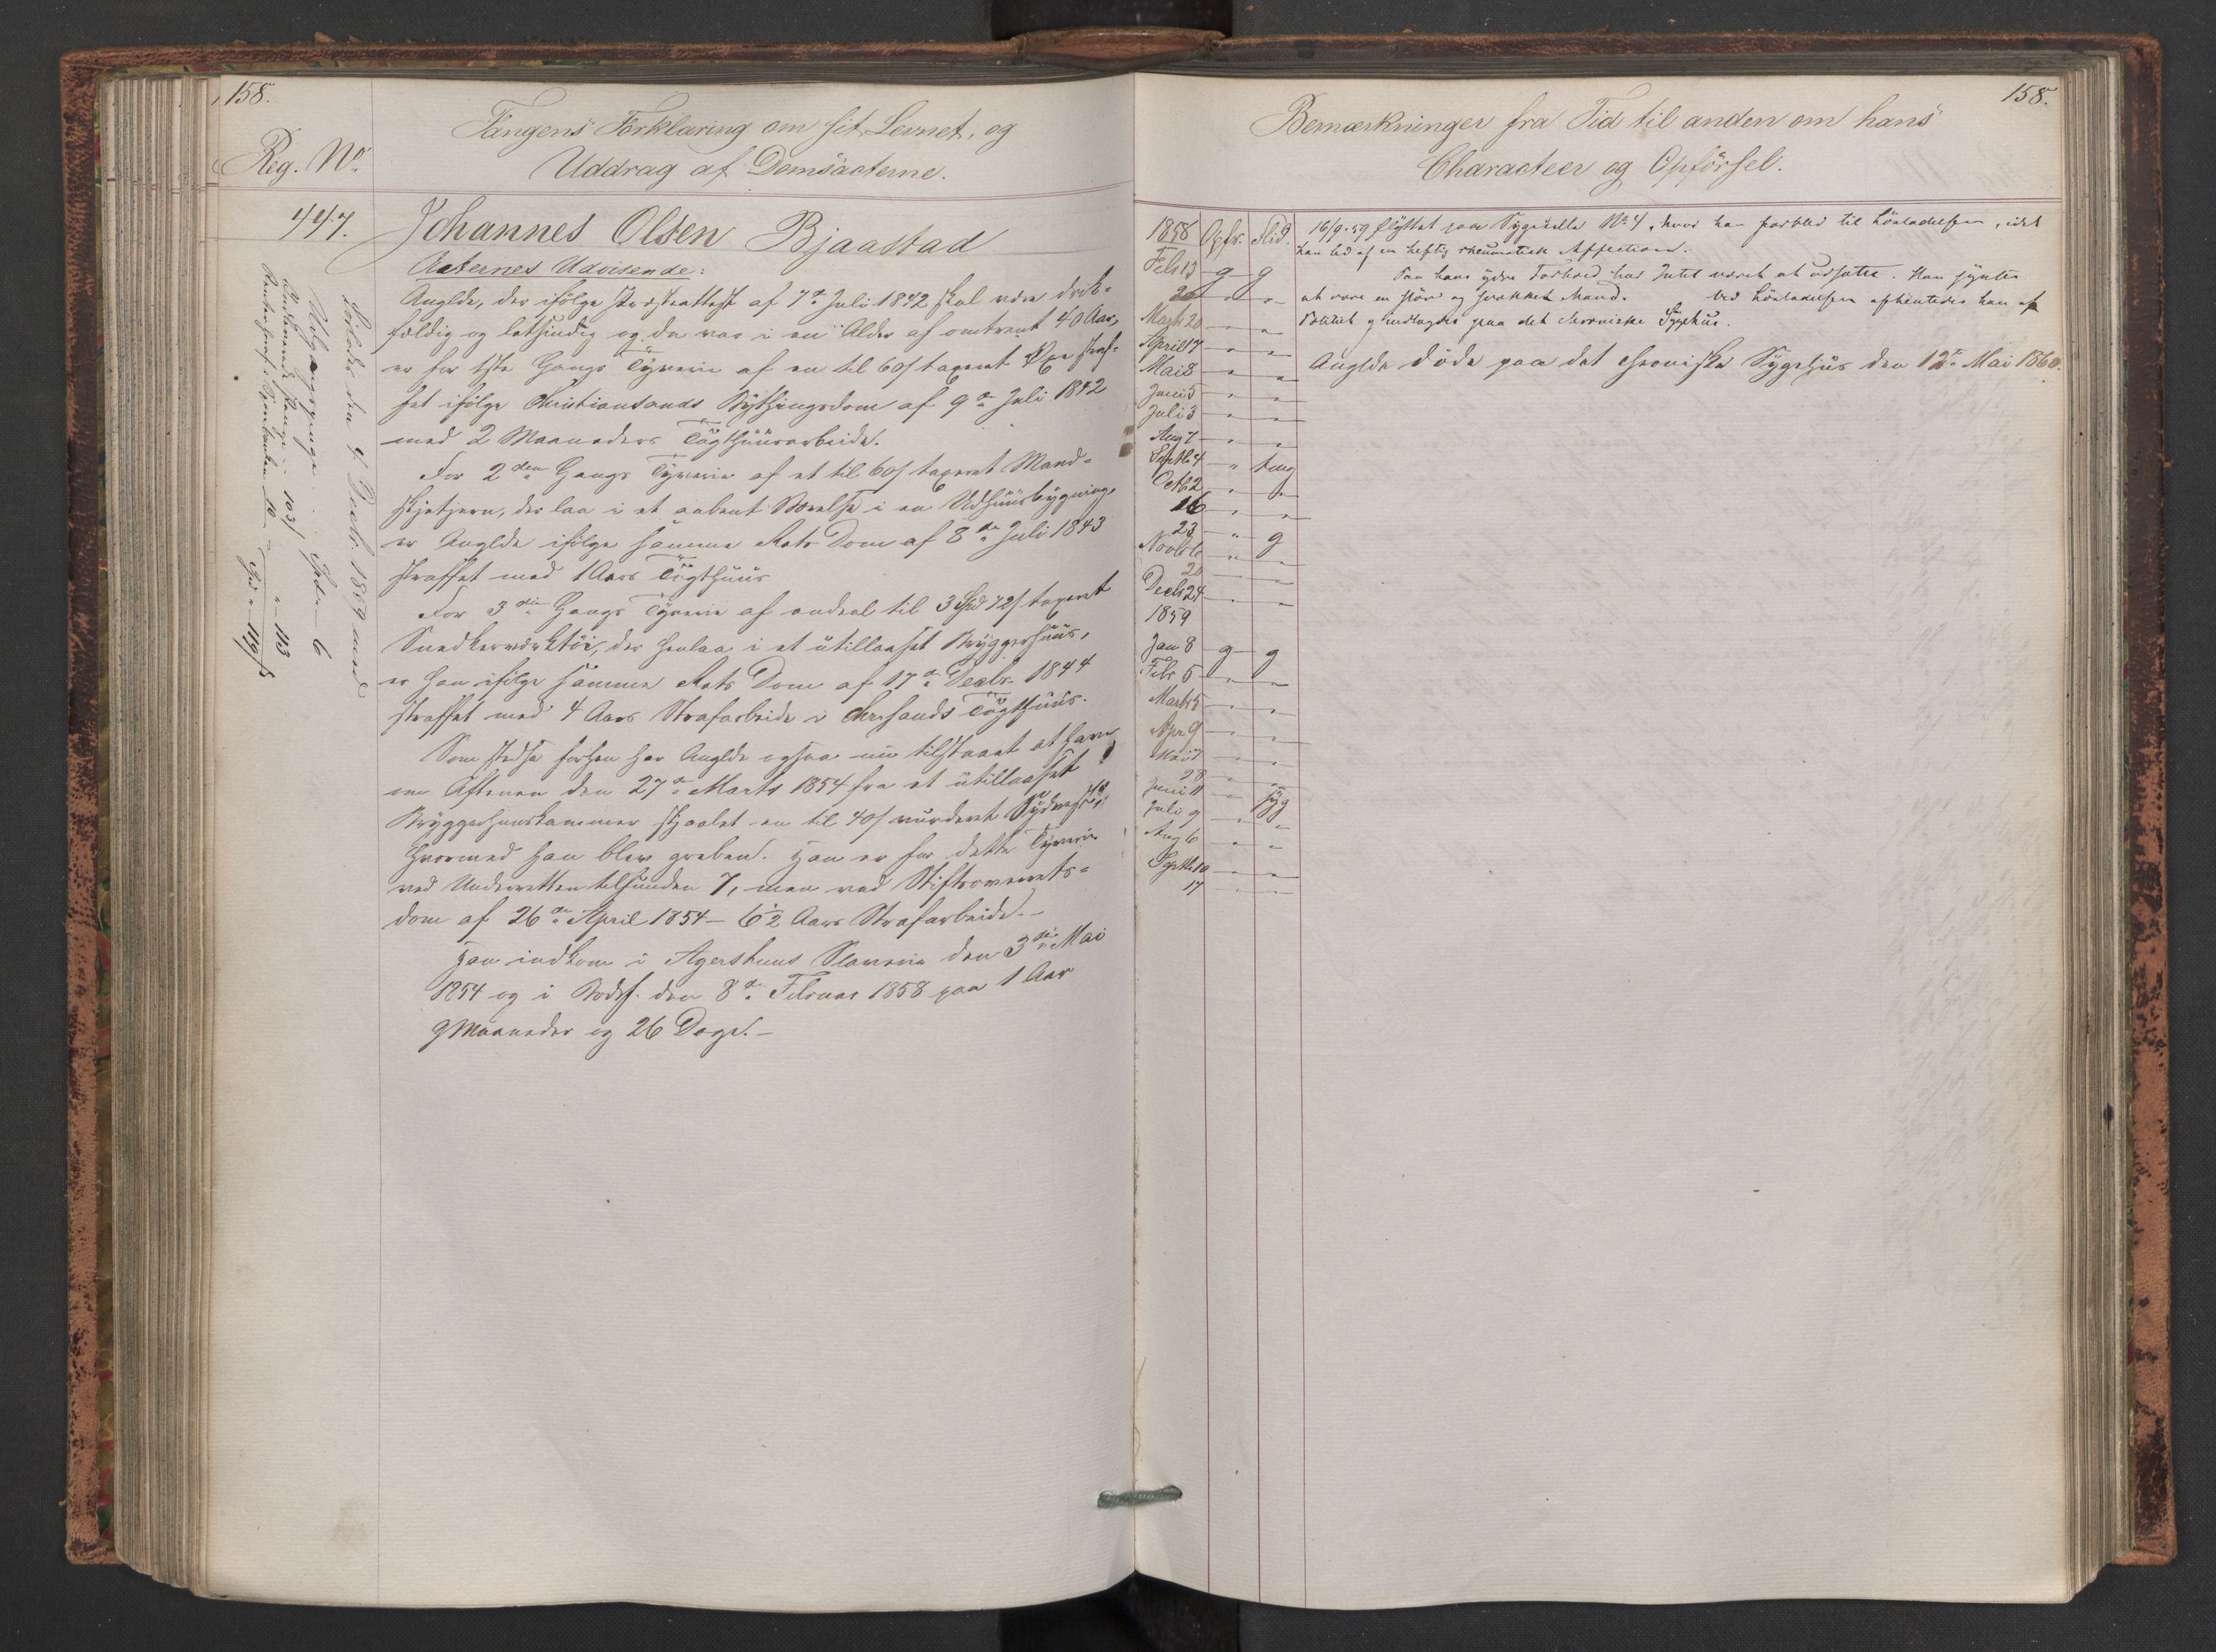 158.
Reg. No.
Fangens Forklaring om sit Levnet, og
Uddrag af Domsacterne.
447.
Johannes Olsen Bjaastad
Acternes Udvisende:
Anglde, der ifölge Præsteattest af 7de Juli 1842 skal være drik-
fældig og letsindig og da var i en Alder af omtrent 40 Aar,
er for 1ste Gangs Tyverie af en til 60/ taxeret Öxe straf-
fet ifölge Christiansands Bythingsdom af 9de Juli 1842
med 2 Maaneders Tügthüüsarbeide.
For 2den Gangs Tyverie af et til 60/ taxeret Mand-
, der laa i et aabent Værelse i en Udhüüsbygning,
er Anglde ifölge samme Rets Dom af 8de Juli 1843
straffet med 1 Aars Tügthüüs
For 3die Gangs Tyverie af endeel til 3 Spd 72/ taxeret
Snedkerverktöi, der henlaa i et utillaaset Bryggerhüüs,
er han ifölge samme Rets Dom af 17de Decbr. 1844
straffet med 4 Aars Strafarbeide i Chrsands Tügthüüs.
Som stedse forhen har Anglde ogsaa nu tilstaaet at have
om Aftenen den 27de Marts 1854 fra et utillaaset
Bryggerhuuskammer stjaalet en til 40/ vurderet Sydvest,
hvormed han blev greben. Han er for dette Tyverie
ved Underretten tilfunden 7, men ved Stiftsoverrets-
dom af 26de April 1854 - 6 1/2 Aars Strafarbeide.-
Han indkom i Agershuus Slaverie den 3die Mai
1854 og i Bodsf. den 8de Februar 1858 paa 1 Aar
9 Maaneder og 26 Dage.-
Löslades den 4 Decbr. 1859 med
Udgangspenge
103/
" 113
10
119/
158.
Bemærkninger fra Tid til anden om hans
Characteer og Opförsel.
1858 Opfr. Flid.
Febr 13 g g
20 " "
Marts 20 " "
April 17 " "
Mai 8 " "
Juni 5 " "
Juli 3 " "
Aug 7 " "
Septb. 4 " tmg
Octb 2 " "
16 " "
23 " g
Novb 6 " "
20 " "
Decb 24 " "
1859
Jan 8 g g
Febr 5 " "
Marts 5 " "
Apr. 9 " "
Mai 7 " "
28 " "
Juni 11 " syg
Juli 9 " "
Aug 6 " "
Septb. 10 " "
17 " "
16/9. 59 flyttet paa Sygecelle No 4, hvor han forblev til Lösladelsen, idet
han led af en heftig rheumatisk Affection.
Paa hans ydre Forhold har Intet været at udsætte. Han syntes
at være en slöv og svækket Mand. Ved Lösladelsen afhentedes han af
Politiet og indlagdes paa det chroniske Sygehus.
Anglde döde paa det chroniske Sygehüs den 12te Mai 1860.